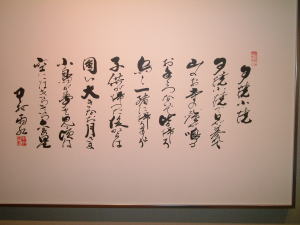 夕焼小焼
夕焼小焼で日が暮て
山のお寺の鐘が鳴る
お手々つないで皆帰ろ
烏と一緒に帰りませう
子供が帰った後からは
圓い大きなお月さま
小鳥が夢を見る頃は
空にはきらきら金の星
中村雨紅